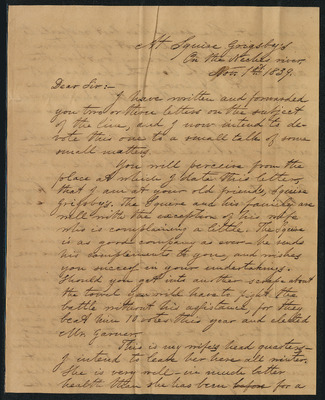 At Squire Grigsby's
On the Neches river
Nov. 1st 1839.
Dear Sir:—
I have written and forwarded
you two or three letters on the subject
of the line, and I now intend to de-
vote this one to a small talk of some
small matters.
You will perceive from the
place at which I date this letter,
that I am at your old friend, Squire
Grigsbys. The Squire and his family are
well with the exception of his wife
who is complaining a little. The Squire
is as good company as ever — he sends
his compliments to you, and wishes
you success in your undertakings.
Should you get into another scrape about
the towel you will have to fight the
battle without his assistance, for they
beat him 18 votes this year and elected
Mr. Garner.
This is my wifes head quarters —
I intend to leave her here all winter.
She is very well — in much better
health than she has been before for a